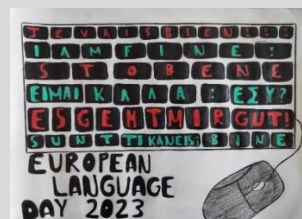 JE VAIS BIEN
I AM FINE!
STO BENE
ΕΙΜΑΙ ΚΑΛΑ ΕΣΥ?
ES GEHT MIR GUT!
SUNT TI KANEIS BINE
EUROPEAN
LANGUAGE
DAY 2023